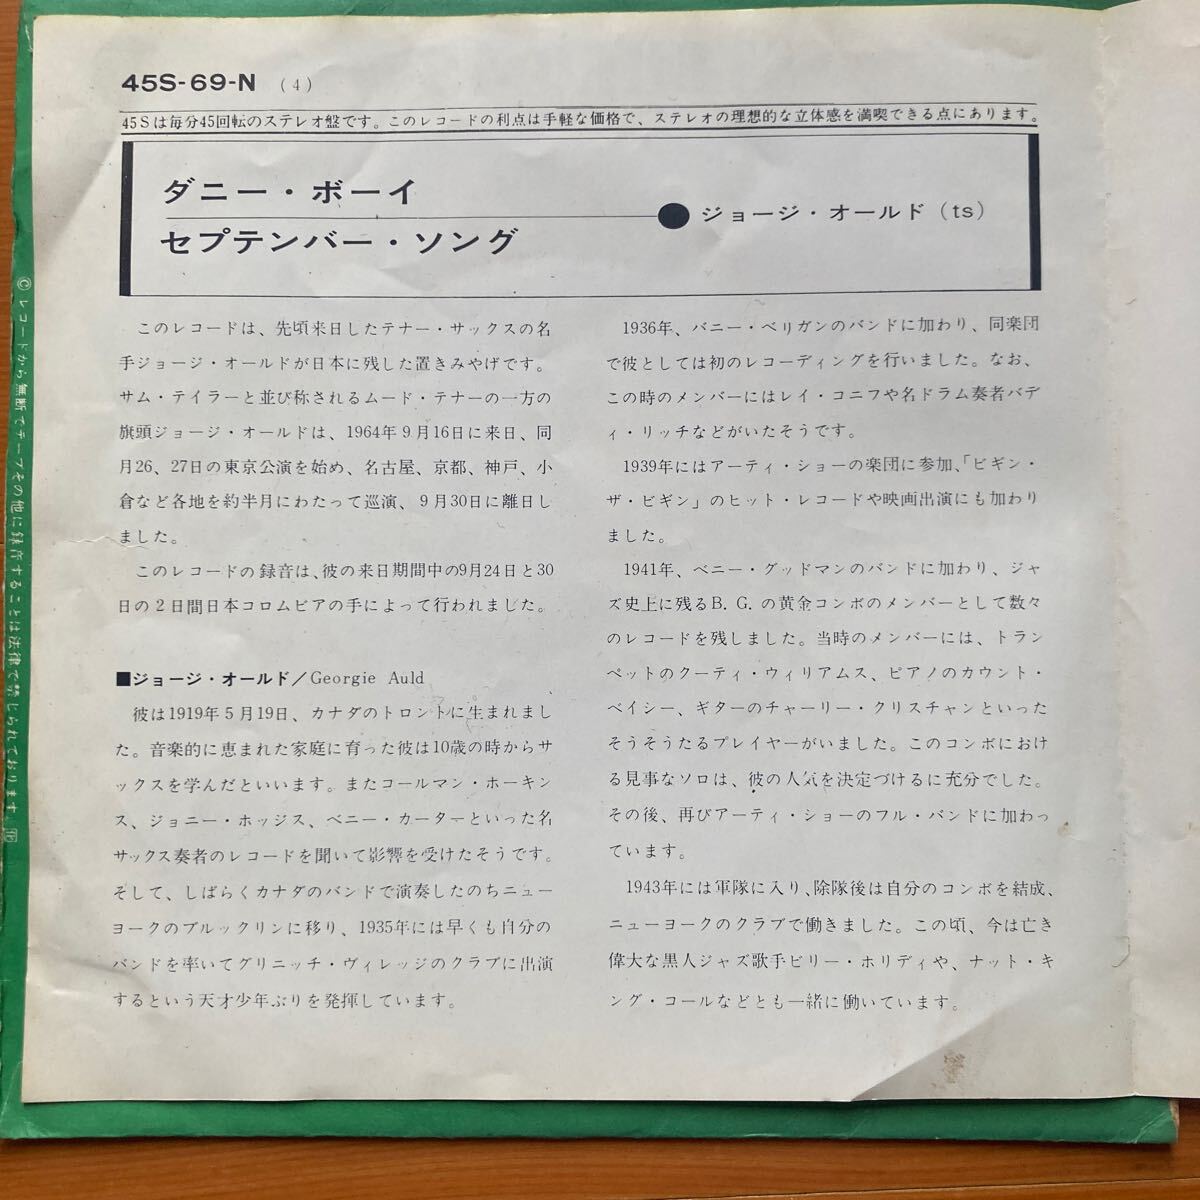 45S-69-N (4)
45Sは毎分45回転のステレオ盤です。このレコードの利点は手軽な価格で、ステレオの理想的な立体感を満喫できる点にあります。
ダニー・ボーイ
セプテンバー・ソング
●ジョージ・オールド(ts)
このレコードは、先頃来日したテナー・サックスの名
手ジョージ・オールドが日本に残した置きみやげです。
サム・テイラーと並び称されるムード・テナーの一方の
旗頭ジョージ・オールドは、1964年9月16日に来日、同
月26、27日の東京公演を始め、名古屋、京都、神戸、小
倉など各地を約半月にわたって巡演、9月30日に離日し
ました。
このレコードの録音は、彼の来日期間中の9月24日と30
日の2日間日本コロムビアの手によって行われました。
■ジョージ・オールド/Georgie Auld
彼は1919年5月19日、カナダのトロントに生まれまし
た。音楽的に恵まれた家庭に育った彼は10歳の時からサ
ックスを学んだといいます。またコールマン・ホーキン
ス、ジョニー・ホッジス、ベニー・カーターといった名
サックス奏者のレコードを聞いて影響を受けたそうです。
そして、しばらくカナダのバンドで演奏したのちニュー
ヨークのブルックリンに移り、1935年には早くも自分の
バンドを率いてグリニッチ・ヴィレッジのクラブに出演
するという天才少年ぶりを発揮しています。
1936年、バニー・ベリガンのバンドに加わり、同楽団
で彼としては初のレコーディングを行いました。なお、
この時のメンバーにはレイ・コニフや名ドラム奏者バデ
ィ・リッチなどがいたそうです。
1939年にはアーティ・ショーの楽団に参加、「ビギン・
ザ・ビギン」のヒット・レコードや映画出演にも加わり
ました。
1941年、ベニー・グッドマンのバンドに加わり、ジャ
ズ史上に残るB.G.の黄金コンボのメンバーとして数々
のレコードを残しました。当時のメンバーには、トラン
ペットのクーティ・ウィリアムス、ピアノのカウント・
ベイシー、ギターのチャーリー・クリスチャンといった
そうそうたるプレイヤーがいました。このコンボにおけ
る見事なソロは、彼の人気を決定づけるに充分でした。
その後、再びアーティ・ショーのフル・バンドに加わっ
ています。
1943年には軍隊に入り、除隊後は自分のコンボを結成、
ニューヨークのクラブで働きました。この頃、今は亡き
偉大な黒人ジャズ歌手ビリー・ホリデイや、ナット・キ
ング・コールなどとも一緒に働いています。
©レコードから無断でテープその他に録音することは法律で禁じられております。